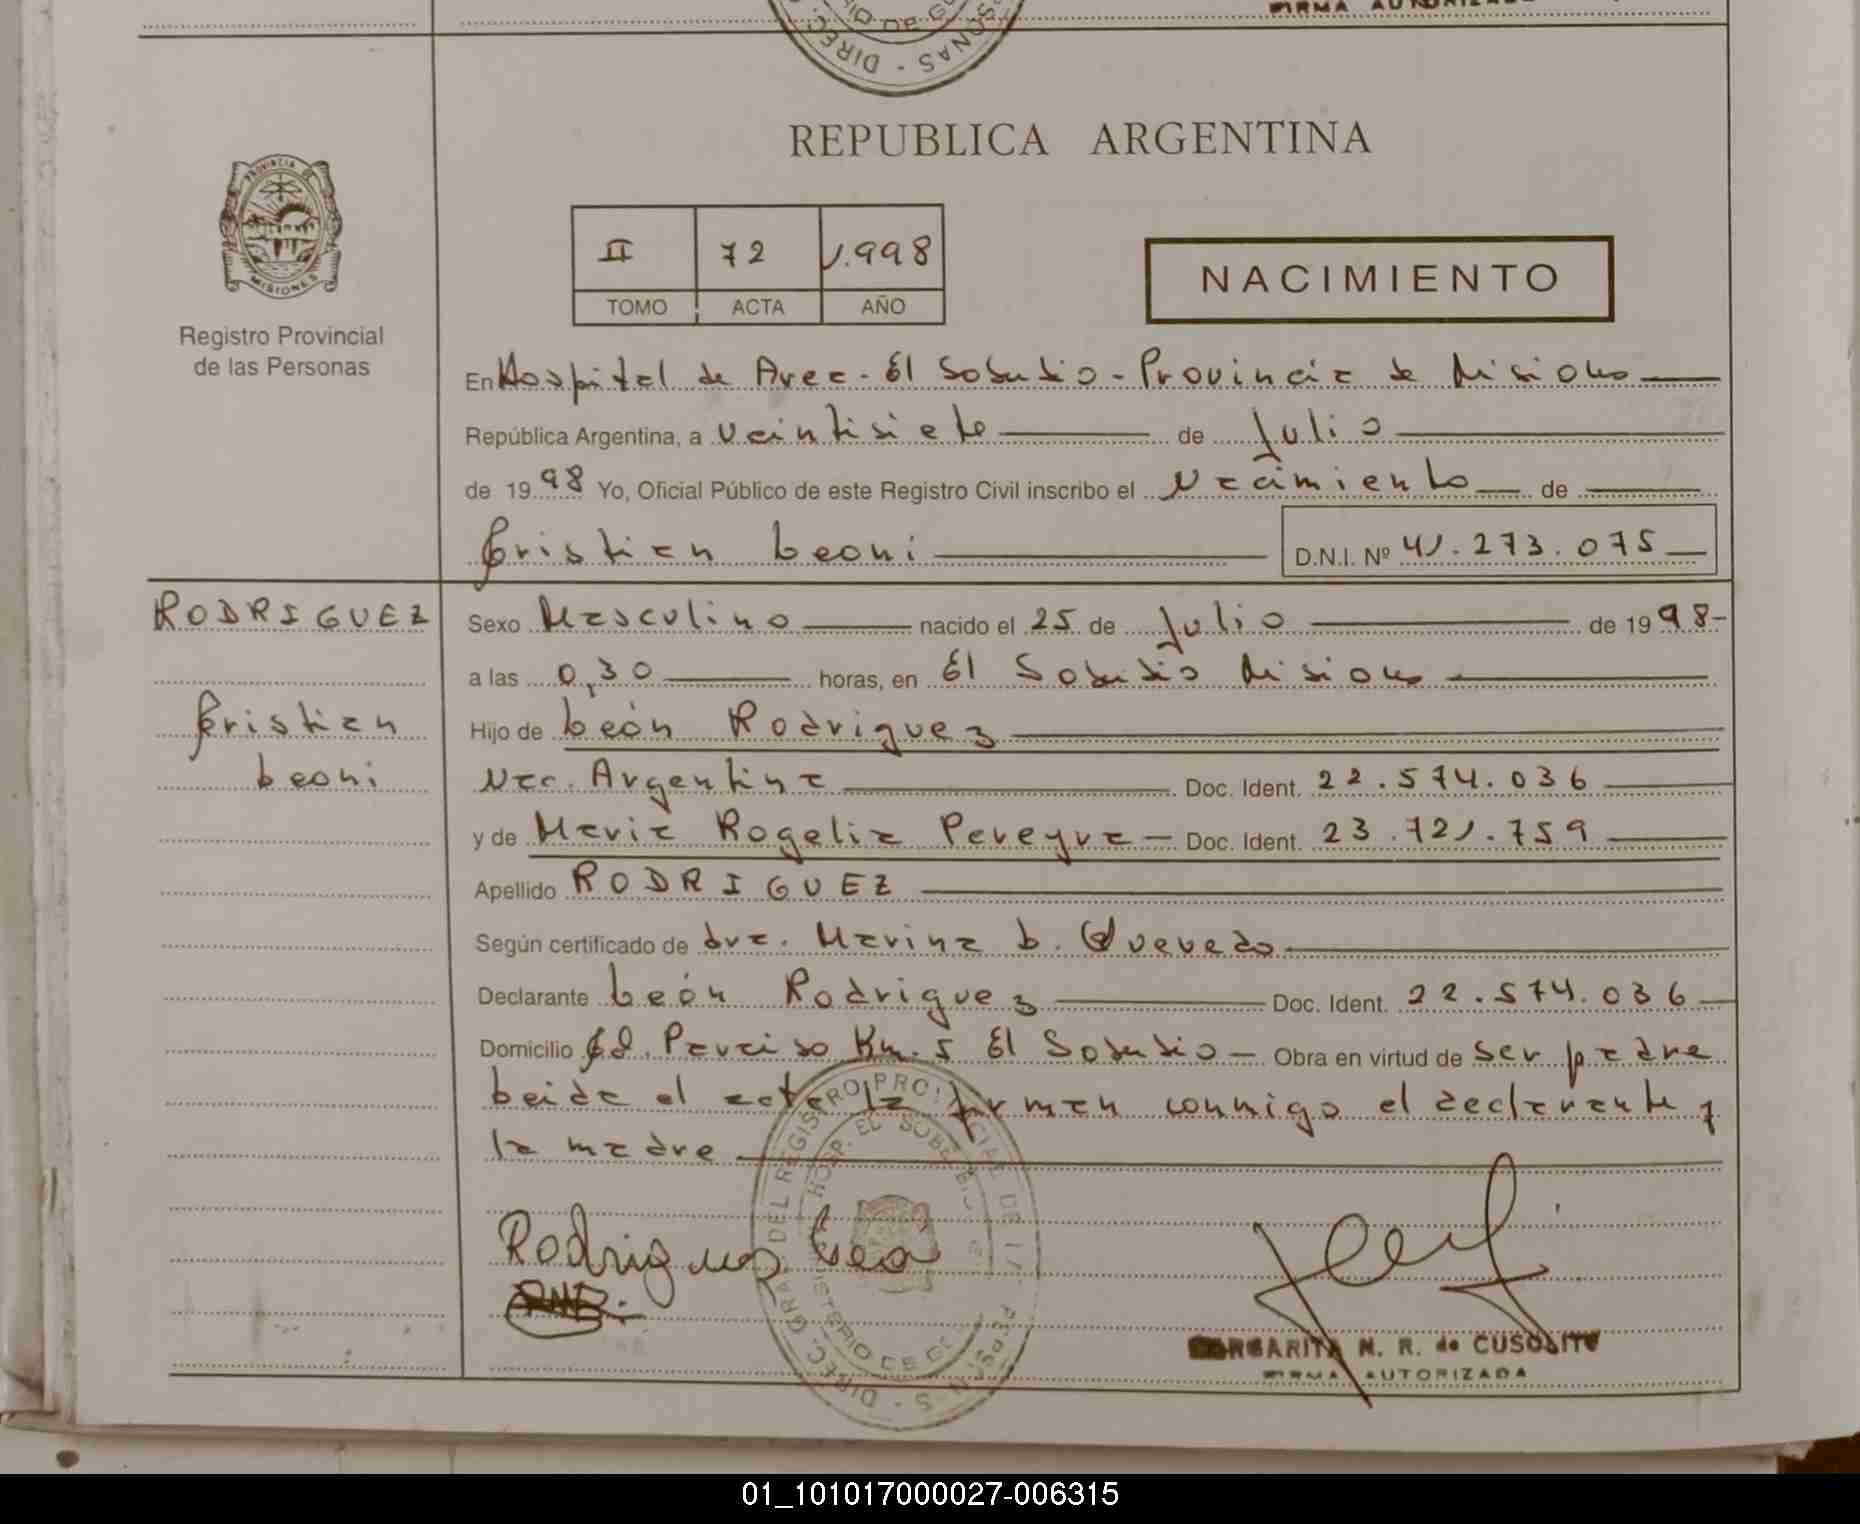 FIRMA AUTORIZADA
REPUBLICA ARGENTINA
PROVINCIA DE MISIONES
Registro Provincial
de las Personas
II 72 1.998
TOMO ACTA AÑO
NACIMIENTO
En Hospital de Area - El Soberbio - Provincia de Misiones
República Argentina, a veintisiete de Julio
de 1998 Yo, Oficial Público de este Registro Civil inscribo el Nacimiento de
Cristian Leoni D.N.I. Nº 41.273.075
RODRIGUEZ
Cristian
Leoni
Sexo Masculino nacido el 25 de Julio de 1998-
a las 0,30 horas, en El Soberbio Misiones
Hijo de León Rodriguez
Nac. Argentina Doc. Ident. 22.574.036
y de Maria Rogelia Pereyra - Doc. Ident. 23.721.759
Apellido RODRIGUEZ
Según certificado de dra. Marina L. Quevedo
Declarante León Rodriguez Doc. Ident. 22.574.036
Domicilio Cd. Paraiso Km. 5 El Soberbio - Obra en virtud de ser padre
Leida el acta la firman conmigo el declarante y
la madre
Rodriguez Leo
MARGARITA N. R. de CUSOLITO
FIRMA AUTORIZADA
01_101017000027-006315